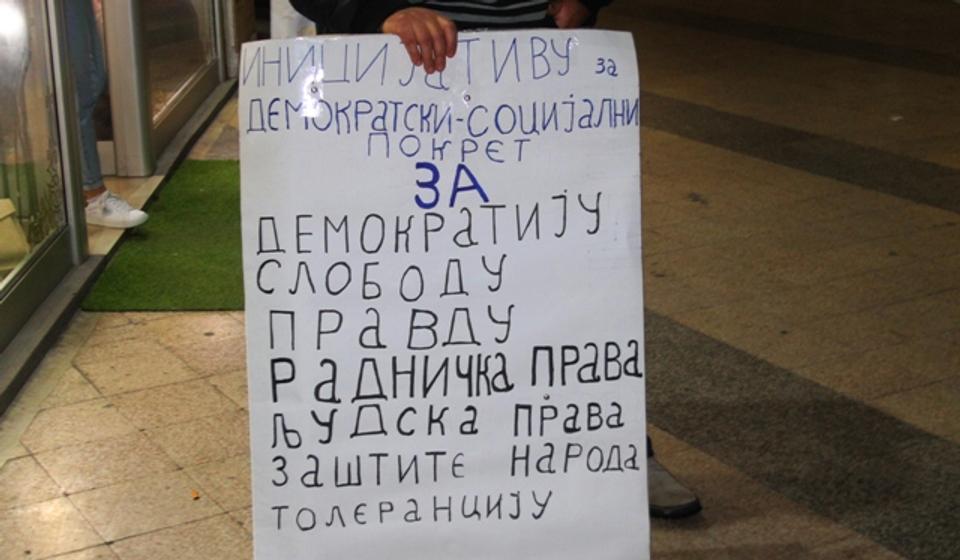 ИНИЦИЈАТИВУ за
ДЕМОКРАТСКИ-СОЦИЈАЛНИ
ПОКРЕТ
ЗА
ДЕМОКРАТИЈУ
СЛОБОДУ
ПРАВДУ
РАДНИЧКА ПРАВА
ЉУДСКА ПРАВА
ЗАШТИТЕ НАРОДА
ТОЛЕРАНЦИЈУ